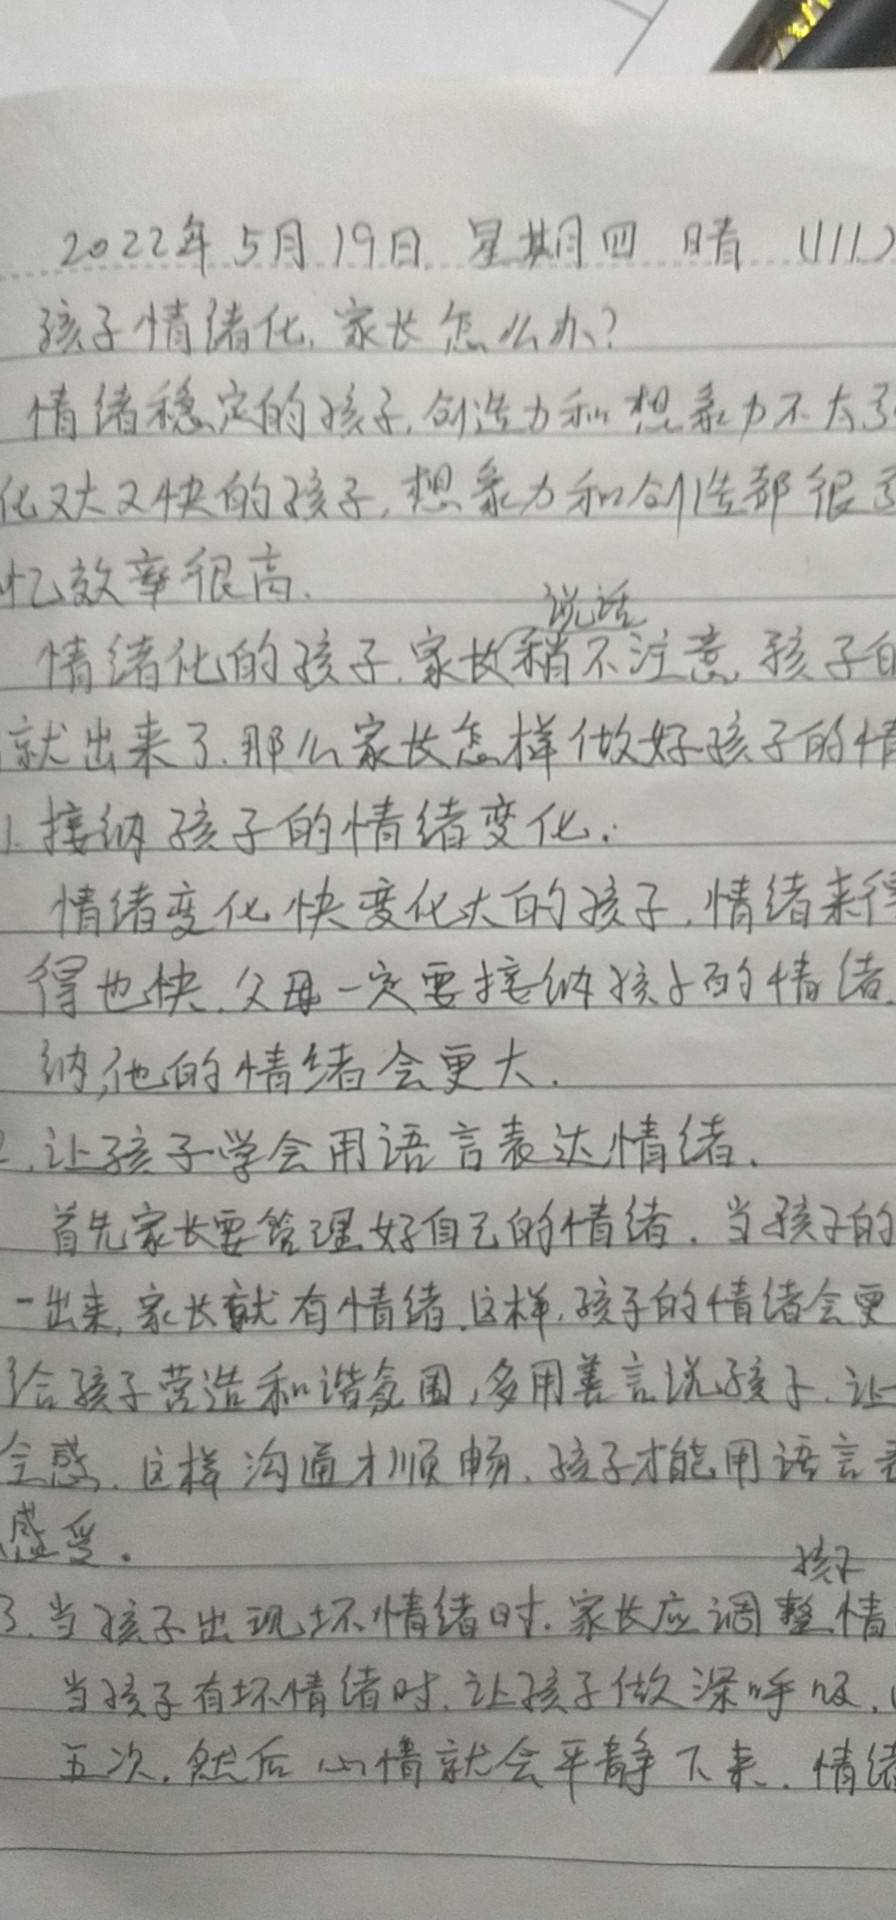 2022年5月19日 星期四 晴 (111)
孩子情绪化,家长怎么办?
情绪稳定的孩子,创造力和想象力不太
化又大又快的孩子,想象力和创造都很
忆效率很高.
说话
情绪化的孩子,家长稍不注意,孩子的
就出来了.那么家长怎样做好孩子的情
1.接纳孩子的情绪变化.
情绪变化快变化大的孩子,情绪来得
得也快.父母一定要接纳孩子的情绪.
纳,他的情绪会更大.
2.让孩子学会用语言表达情绪.
首先家长要管理好自己的情绪.当孩子的
一出来,家长就有情绪.这样,孩子的情绪会更
给孩子营造和谐氛围,多用善言说孩子.让
全感.这样沟通才顺畅.孩子才能用语言表
感受.
孩子
3.当孩子出现坏情绪时.家长应调整情
当孩子有坏情绪时,让孩子做深呼吸,
五次,然后心情就会平静下来.情绪